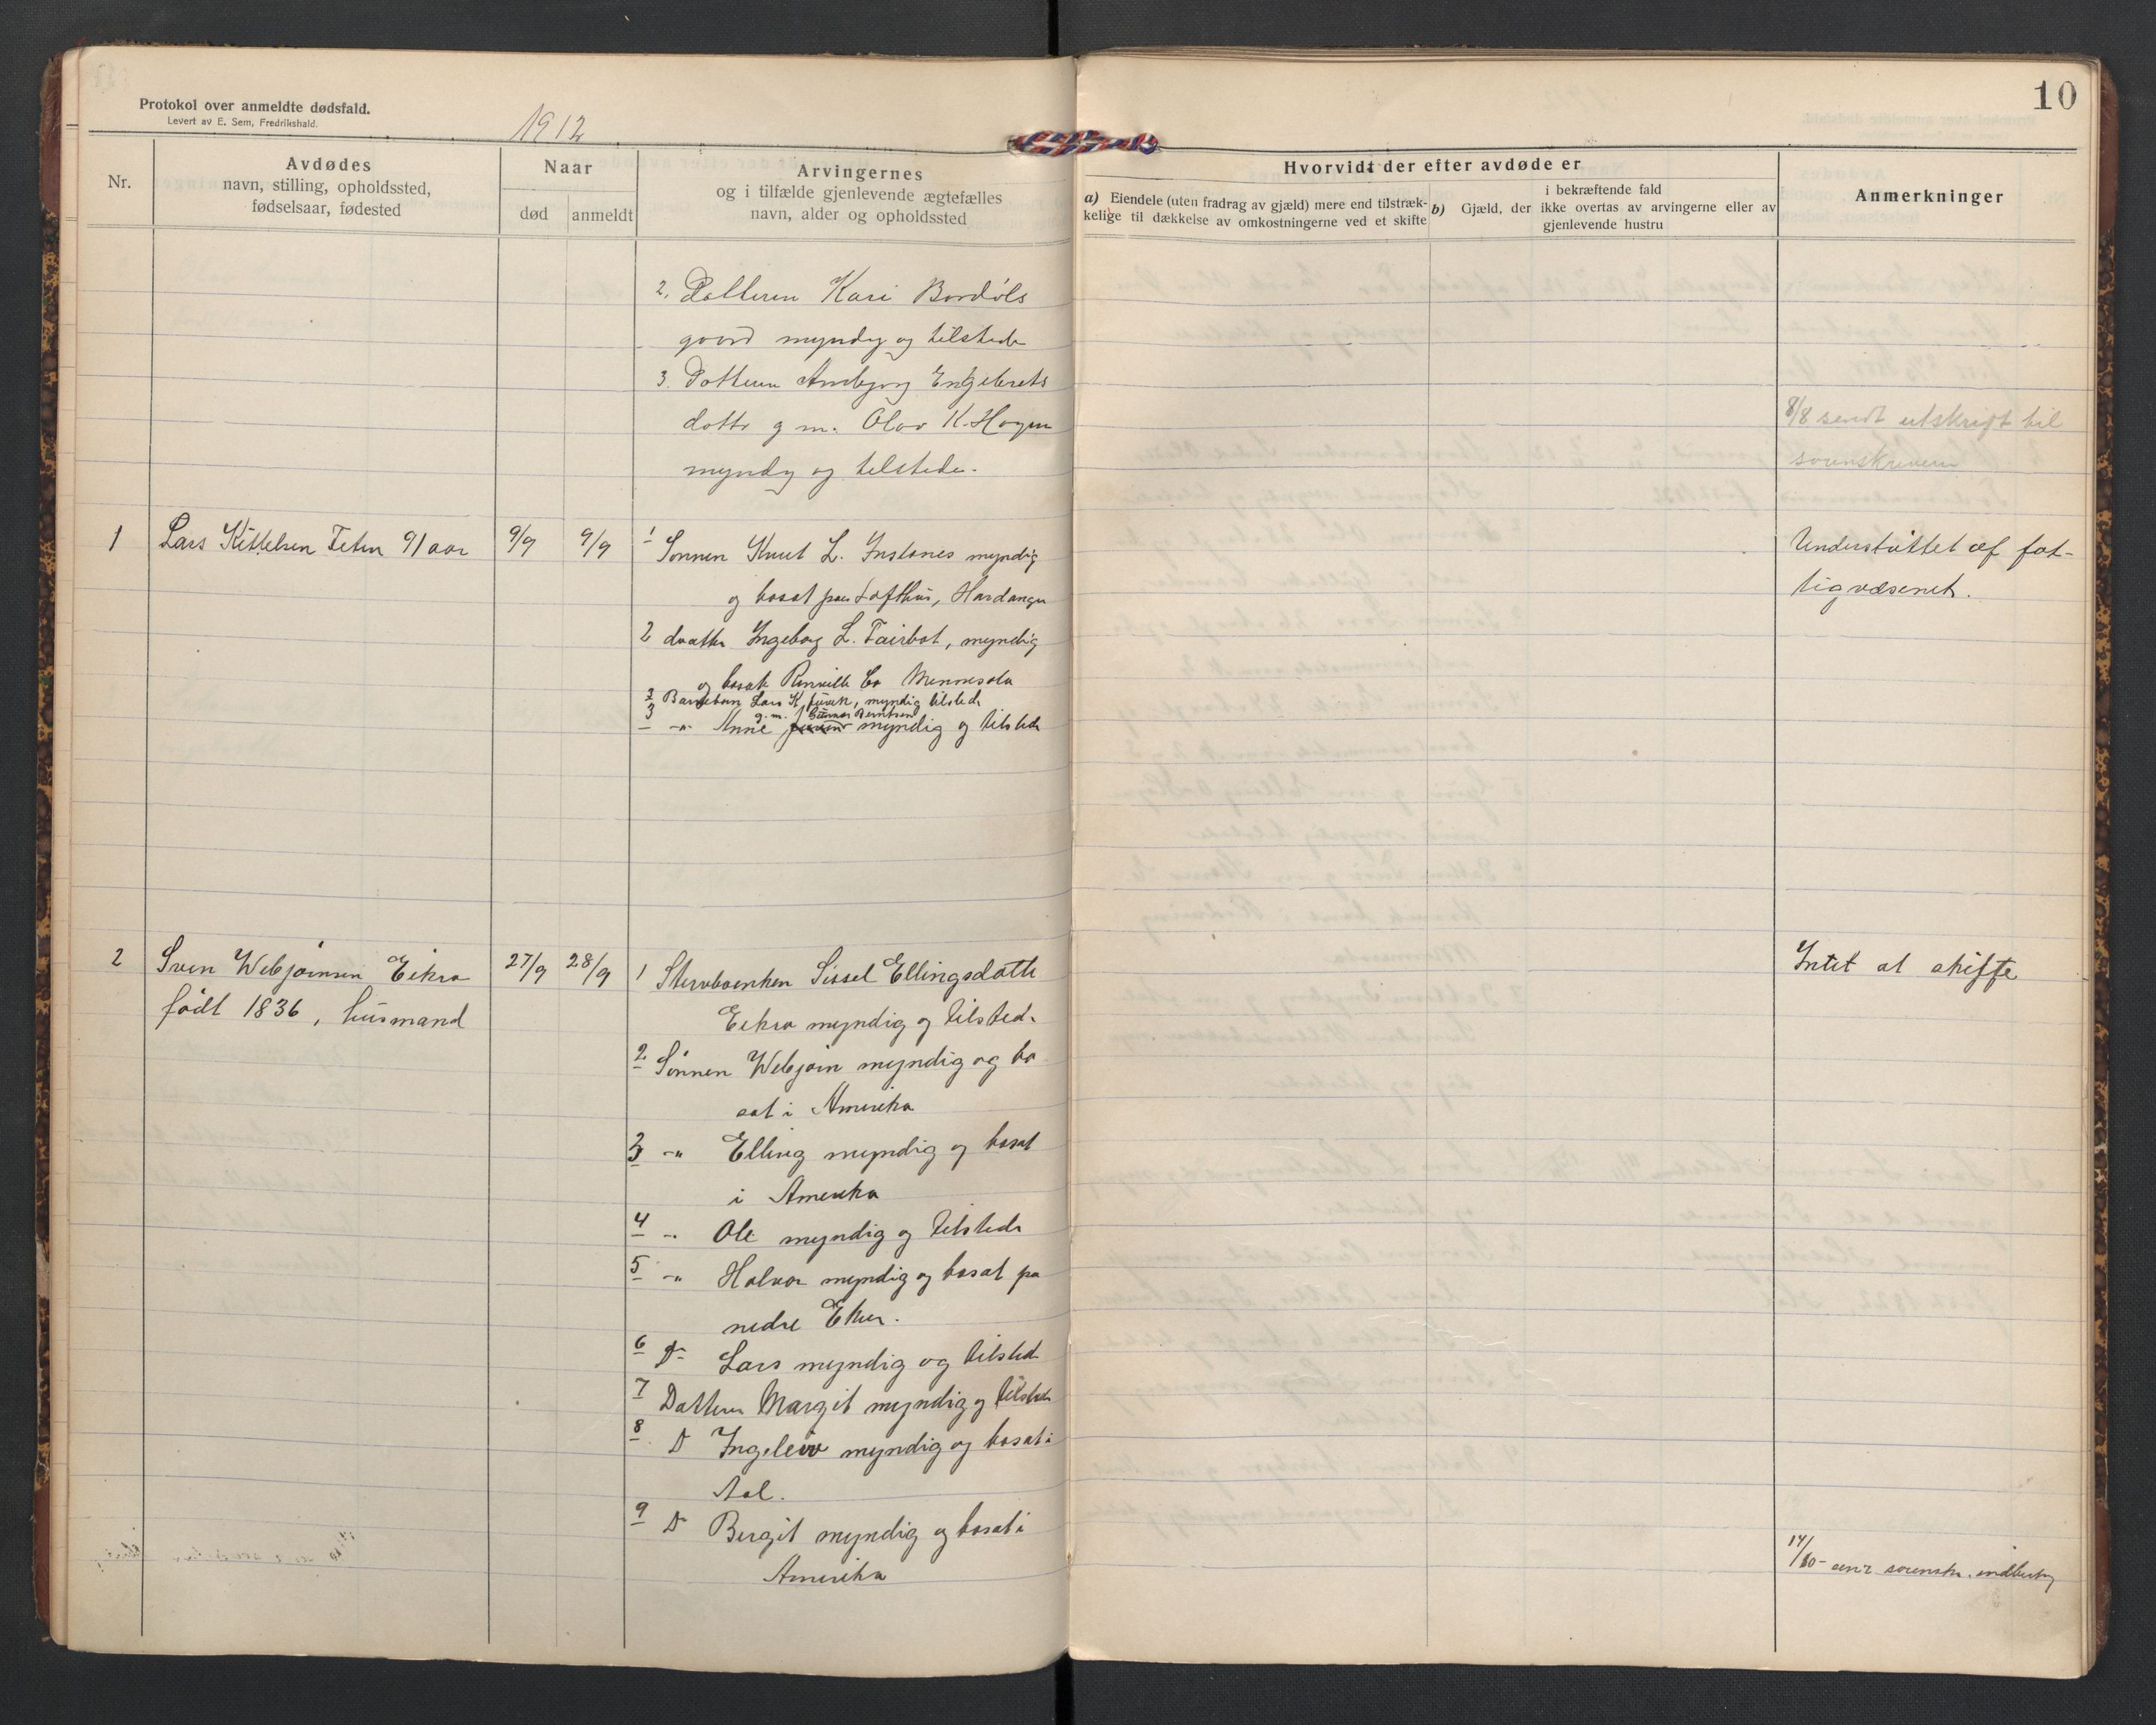 10
Protokol over anmeldte dødsfald.
Levert av E. Sem, Fredrikshald.
1912
Nr.
Avdødes
navn, stilling, opholdssted,
fødselsaar, fødested
Naar
død
anmeldt
Arvingernes
og i tilfælde gjenlevende ægtefælles
navn, alder og opholdssted
Hvorvidt der efter avdøde er
a) Eiendele (uten fradrag av gjæld) mere end tilstræk-
kelige til dækkelse av omkostningerne ved et skifte
i bekræftende fald
b) Gjæld, der ikke overtas av arvingerne eller av
gjenlevende hustru
Anmerkninger
2. Datteren Kari Bardøls
gaard myndig og tilstede
3. Datteren Ambjørg Engebrets
datter g m. Olav K. Hagen
myndig og tilstede.
8/8 sendt utskrift til
sorenskriveren
1 Lars Kittelsen Teten 91 aar 9/9 9/9
1 Sønnen Knut L. Instanes myndig
og bosat paa Lofthus, Hardanger
2 datter Ingeborg L. Fairbot, myndig
og bosat Renville Co Minnesota
3 Barnebarn Lars K. myndig tilstede
g. m. Gunnar Berntsen
3 -"- Anne myndig og tilstede
Understøttet af fat-
tigvæsenet.
2 Sven Webjørnsen Eikra 27/9 28/9
født 1836, husmand
1 Stervboenken Sissel Ellingsdatter
Eikra myndig og tilstede
2 Sønnen Webjørn myndig og bo
sat i Amerika
3 -"- Elling myndig og bosat
i Amerika
4 -"- Ole myndig og tilstede
5 -"- Halvor myndig og bosat pa
nedre Eker.
6 D Lars myndig og tilsted
7 Datteren Margit myndig og tilstede
8 D Ingeleiv myndig og bosat i
Aal.
9 D Bergit myndig og bosat i
Amerika
Intet at skifte
14/10- sorenskr. indberetn